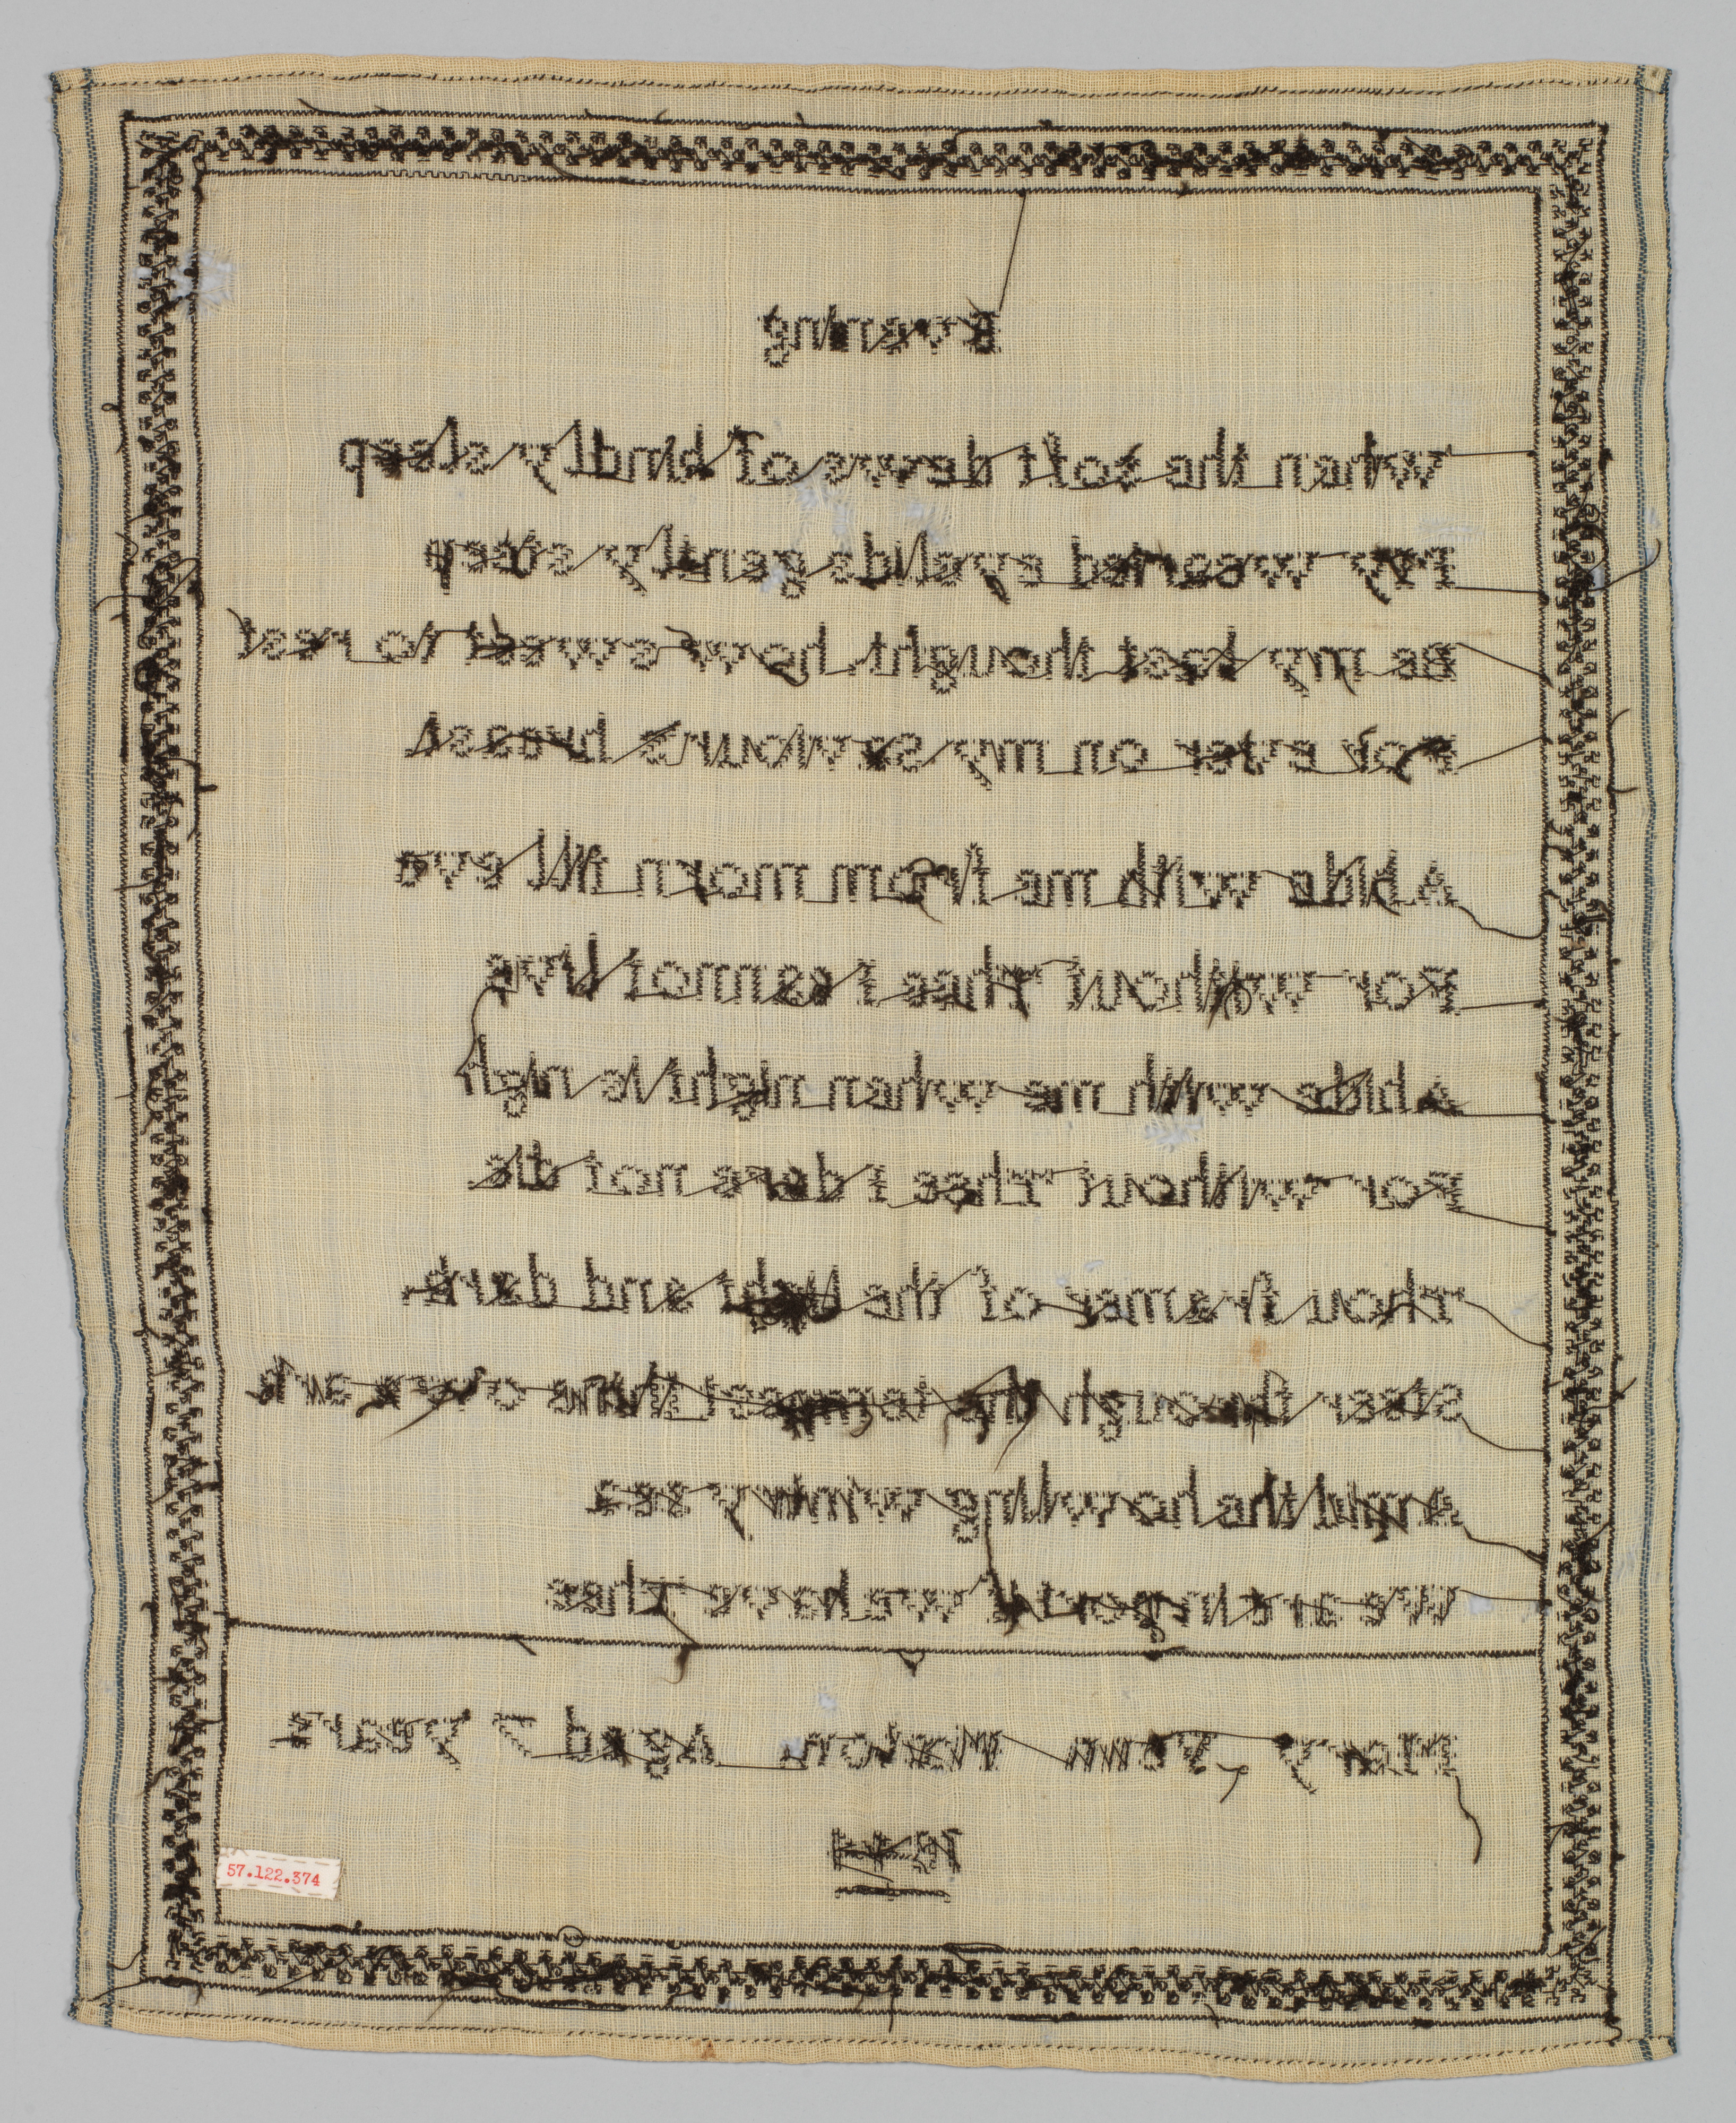 Evening
When the soft dews of kindly sleep
My wearied eyelids gently steep
Be my last thought how sweet to rest
For ever on my Saviours breast
Abide with me from morn till eve
For without Thee I cannot live
Abide with me when night is nigh
For without Thee I dare not die
Thou framer of the light and dark
Steer through the tempest thine own ark
Amid the howling wintry sea
We are in port if we have Thee
Mary Morton Aged 7 years
57.122.374